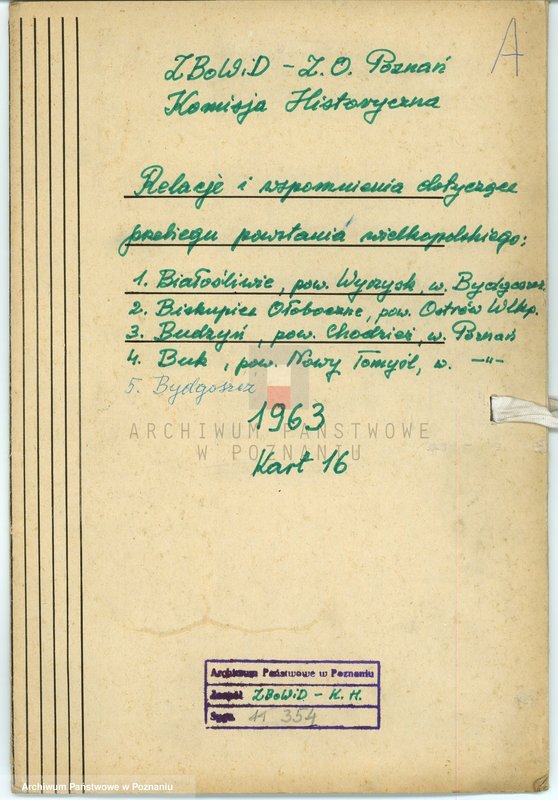 A
ZBoWiD - Z.O. Poznań
Komisja Historyczna
Relacje i wspomnienia dotyczące
przebiegu powstania wielkopolskiego:
1. Białośliwie, pow. Wyrzysk, w. Bydgoszcz
2. Biskupice Ołoboczne, pow. Ostrów Wlkp.
3. Budzyń, pow. Chodzież, w. Poznań
4. Buk, pow. Nowy Tomyśl, w. -"-
5. Bydgoszcz
1963
ARCHIWUM PAŃSTWOWE
W POZNANIU
Kart 16
Archiwum Państwowe w Poznaniu
Zespół ZBoWiD - K.H.
Sygn. 11 354
Archiwum Państwowe w Poznaniu